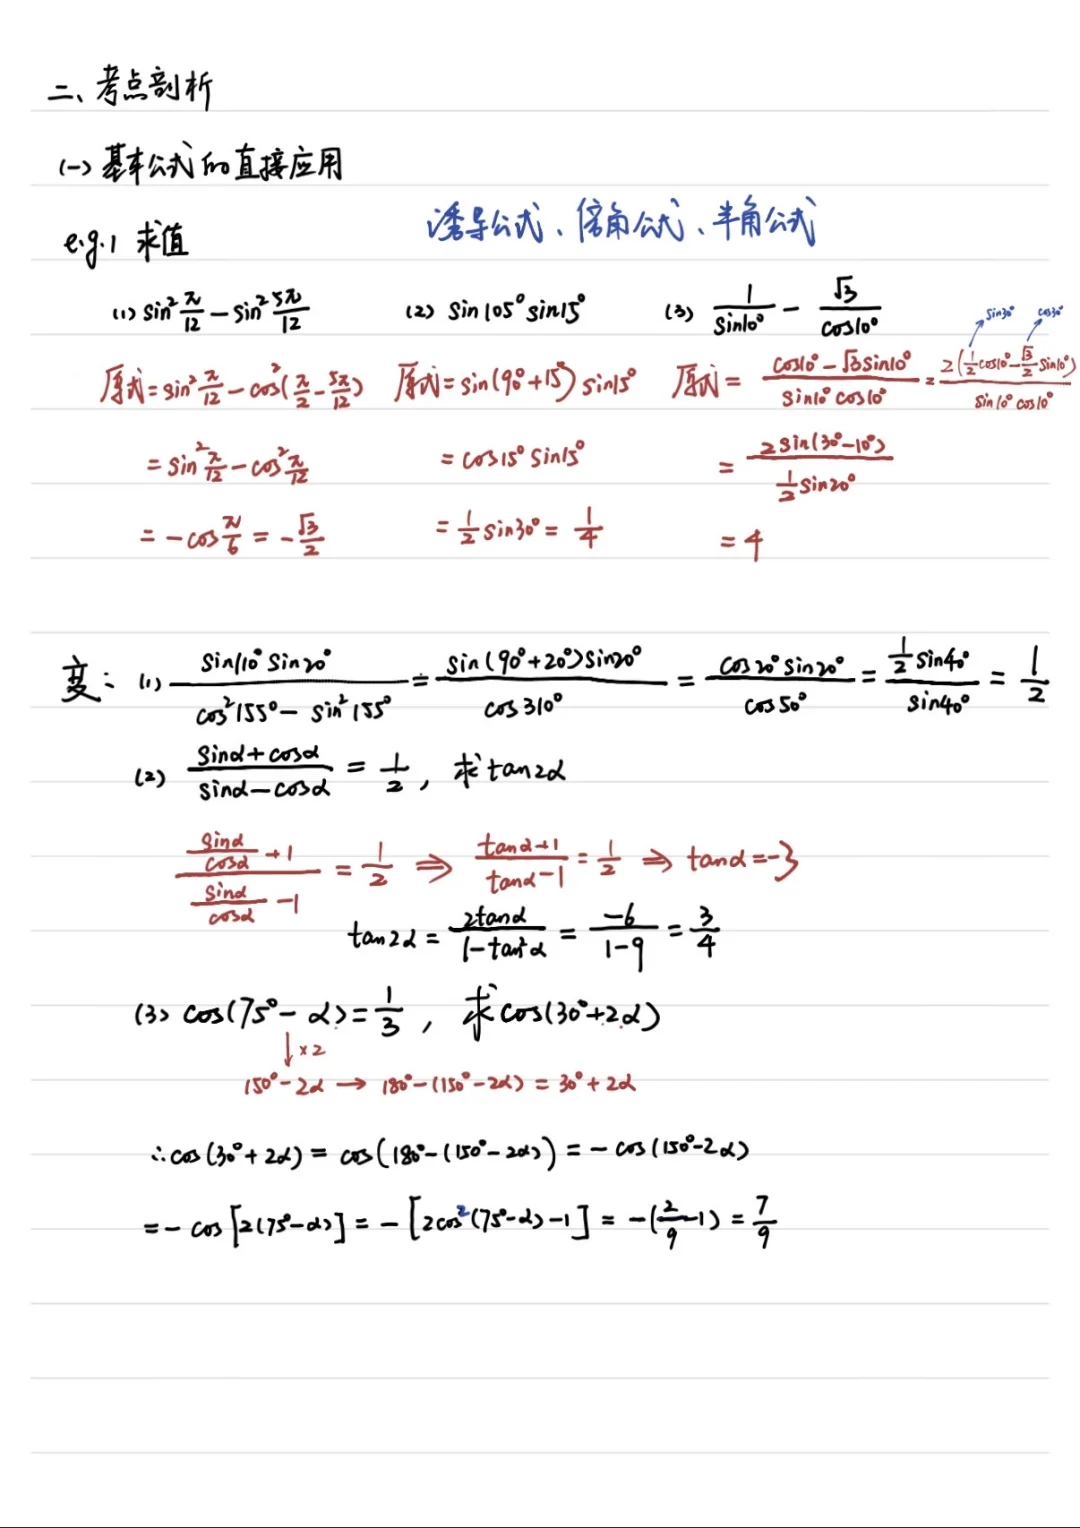 二、考点剖析
(一) 基本公式的直接应用
诱导公式、倍角公式、半角公式
e.g.1 求值
(1) sin²π/12 - sin²5π/12 (2) sin105°sin15° (3) 1/sin10° - √3/cos10°
sin30° cos30°
原式=sin²π/12 - cos²(π/2 - 5π/12) 原式=sin(90°+15°)sin15° 原式= (cos10°-√3sin10°)/(sin10°cos10°) = 2(1/2cos10°-√3/2sin10°)/(sin10°cos10°)
=sin²π/12 - cos²π/12 =cos15°sin15° = 2sin(30°-10°)/(1/2sin20°)
=-cosπ/6 = -√3/2 =1/2sin30°=1/4 =4
变: (1) sin110°sin20°/(cos²155°-sin²155°) = sin(90°+20°)sin20°/cos310° = cos20°sin20°/cos50° = (1/2sin40°)/sin40° = 1/2
(2) (sinα+cosα)/(sinα-cosα) = 1/2, 求tan2α
(sinα/cosα+1)/(sinα/cosα-1) = 1/2 ⇒ (tanα+1)/(tanα-1) = 1/2 ⇒ tanα=-3
tan2α = 2tanα/(1-tan²α) = -6/(1-9) = 3/4
(3) cos(75°-α)=1/3, 求cos(30°+2α)
↓×2
150°-2α → 180°-(150°-2α) = 30°+2α
∴cos(30°+2α) = cos(180°-(150°-2α)) = -cos(150°-2α)
=-cos[2(75°-α)] = -[2cos²(75°-α)-1] = -(2/9-1) = 7/9